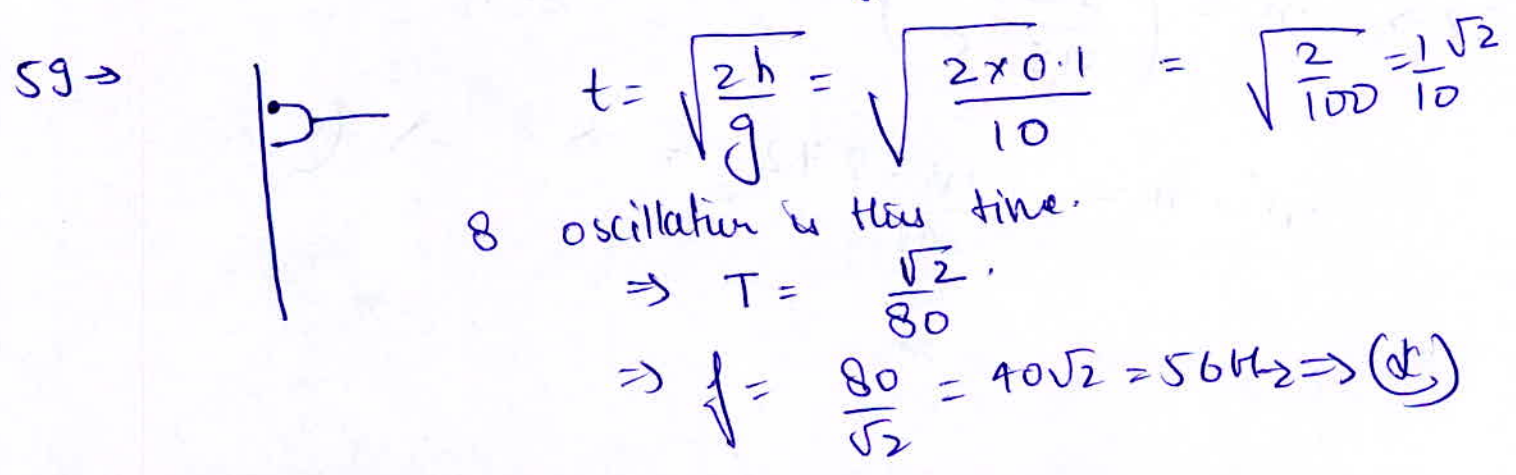 59→
t = √(2h/g) = √(2×0.1/10) = √(2/100) = 1/10 √2
8 oscillation is this time.
⇒ T = √2/80.
⇒ f = 80/√2 = 40√2 = 56Hz ⇒